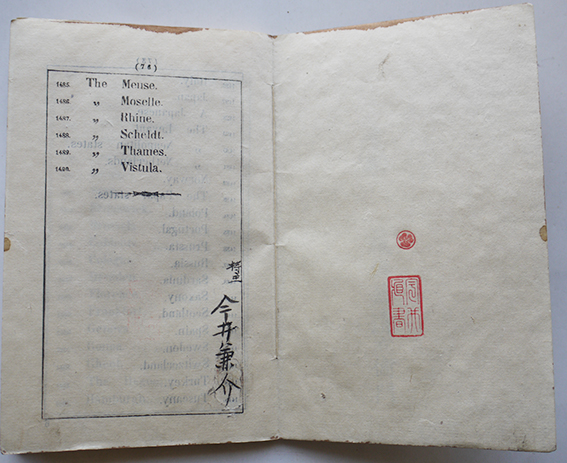 (74)
1485. The Meuse.
1486. „ Moselle.
1487. „ Rhine.
1488. „ Scheldt.
1489. „ Thames.
1490. „ Vistula.
今井兼介